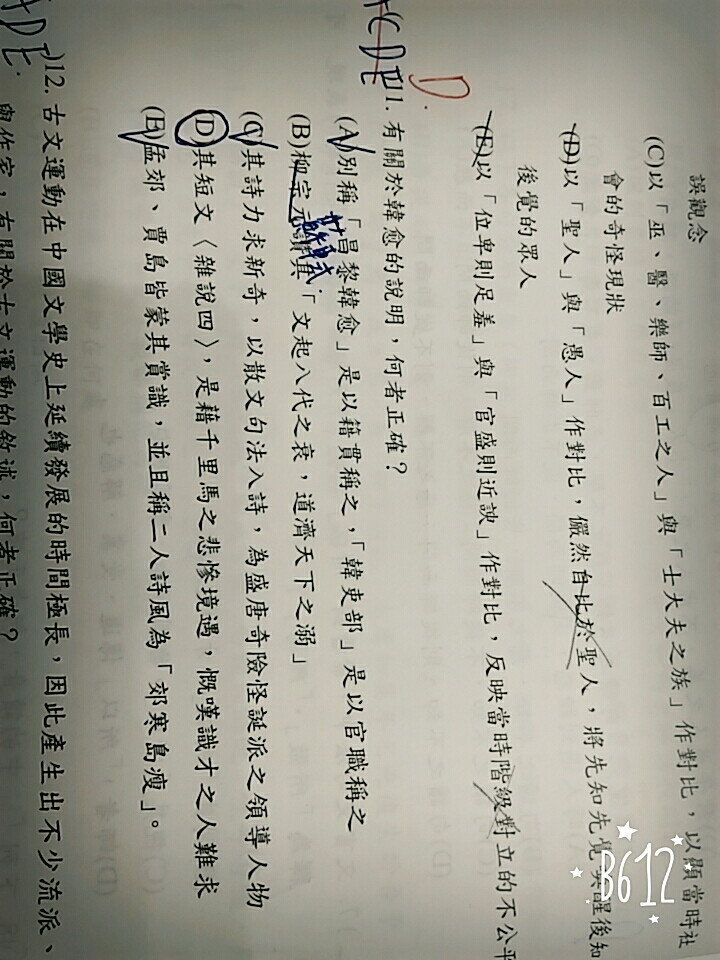 誤觀念
(C)以「巫、醫、樂師、百工之人」與「士大夫之族」作對比，以顯當時社
會的奇怪現狀
(D)以「聖人」與「愚人」作對比，儼然自比於聖人，將先知先覺喚醒後知
後覺的眾人
(E)以「位卑則足羞」與「官盛則近諛」作對比，反映當時階級對立的不公平
D.
ACDE
11. 有關於韓愈的說明，何者正確？
(A)別稱「昌黎韓愈」是以籍貫稱之，「韓吏部」是以官職稱之
(B)柳宗元讚其「文起八代之衰，道濟天下之溺」
蘇軾
(C)其詩力求新奇，以散文句法入詩，為盛唐奇險怪誕派之領導人物
(D)其短文〈雜說四〉，是藉千里馬之悲慘境遇，慨嘆識才之人難求
(E)孟郊、賈島皆蒙其賞識，並且稱二人詩風為「郊寒島瘦」。
ADE
)12. 古文運動在中國文學史上延續發展的時間極長，因此產生出不少流派、
與作家，有關於古文運動的敘述，何者正確？
B612